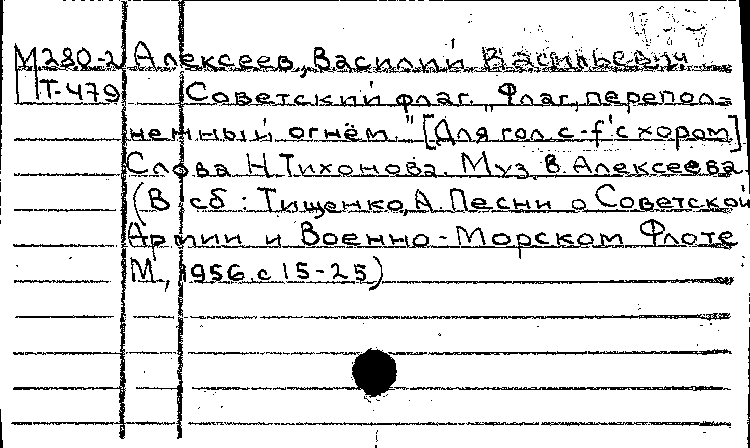 М280-2 Алексеев, Василий Васильевич
Т-479 Советский флаг. „Флаг, перепол=
ненный огнём." [Для гол. с ф-с хором]
Слова Н. Тихонова. Муз. В. Алексеева
(В сб: Тищенко, А. Песни о Советской
Армии и Военно-Морском Флоте
М., 1956. с 15-25)